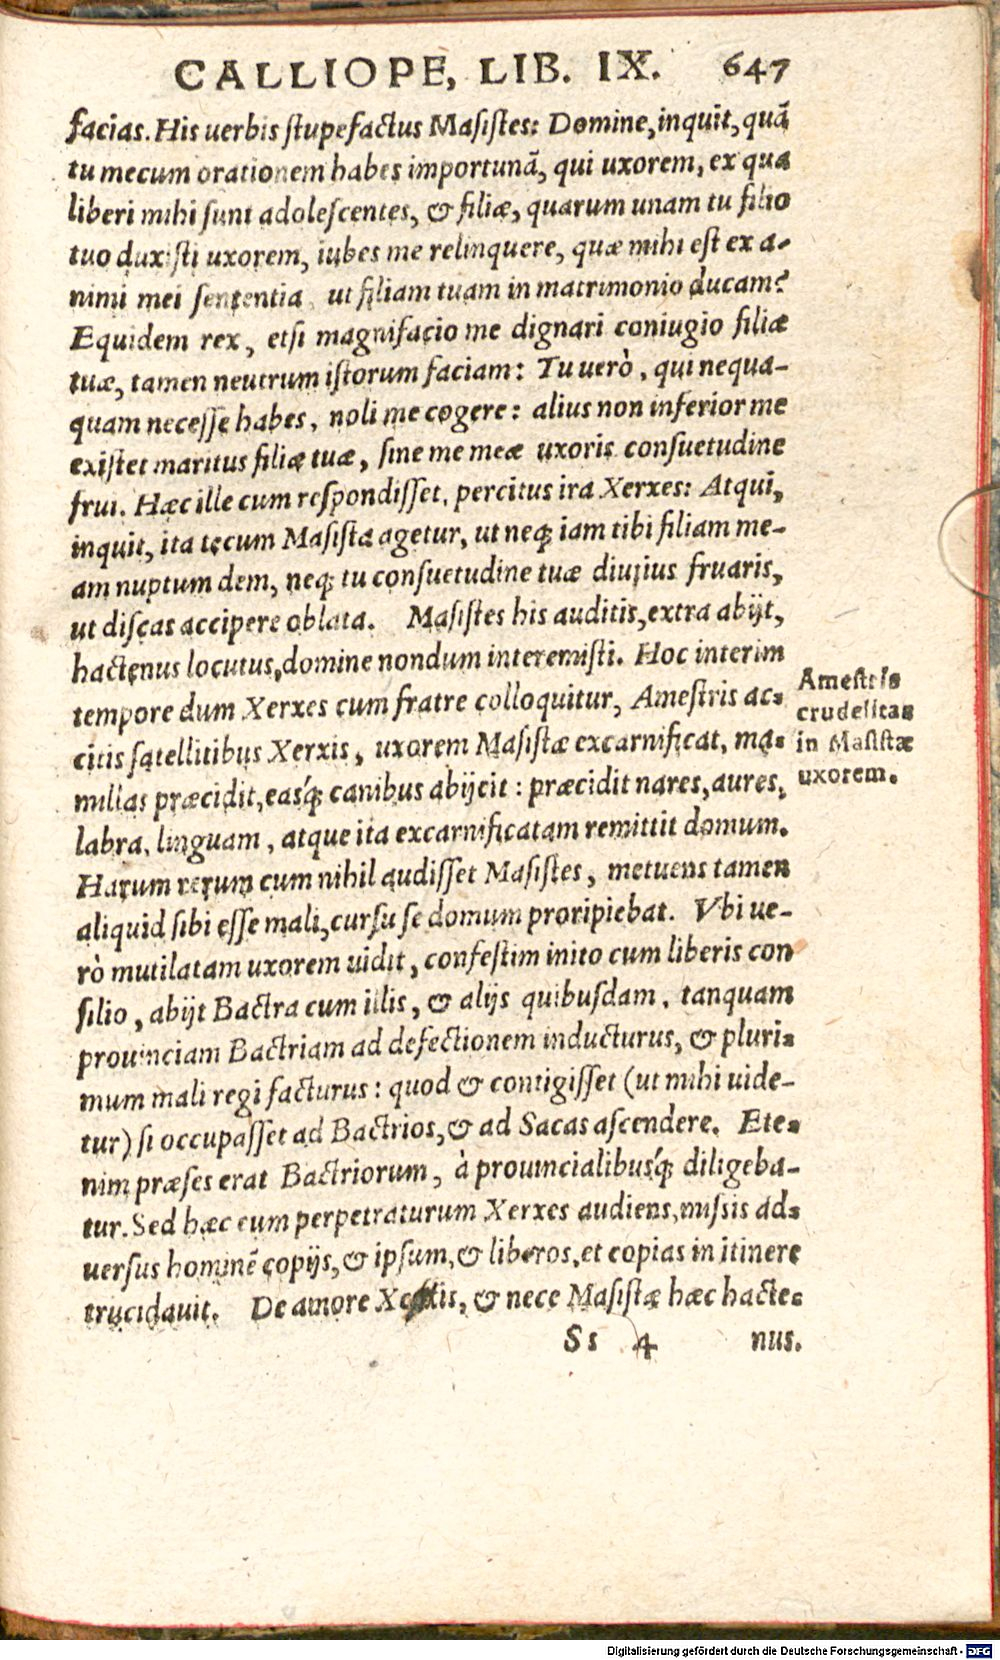 CALLIOPE, LIB. IX. 647
facias. His uerbis stupefactus Masistes: Domine, inquit, quã
tu mecum orationem habes importunã, qui uxorem, ex qua
liberi mihi sunt adolescentes, & filiæ, quarum unam tu filio
tuo duxisti uxorem, iubes me relinquere, quæ mihi est ex a-
nimi mei sententia, ut filiam tuam in matrimonio ducam?
Equidem rex, etsi magnifacio me dignari coniugio filiæ
tuæ, tamen neutrum istorum faciam: Tu uerò, qui nequa-
quam necesse habes, noli me cogere: alius non inferior me
existet maritus filiæ tuæ, sine me meæ uxoris consuetudine
frui. Hæc ille cum respondisset, percitus ira Xerxes: Atqui,
inquit, ita tecum Masista agetur, ut neq; iam tibi filiam me-
am nuptum dem, neq; tu consuetudine tuæ diutius fruaris,
ut discas accipere oblata. Masistes his auditis, extra abijt,
hactenus locutus, domine nondum interemisti. Hoc interim
tempore dum Xerxes cum fratre colloquitur, Amestris ac-
citis satellitibus Xerxis, uxorem Masistæ excarnificat, ma-
millas præcidit, easq́; canibus abijcit: præcidit nares, aures,
labra, linguam, atque ita excarnificatam remittit domum.
Harum rerum cum nihil audisset Masistes, metuens tamen
aliquid sibi esse mali, cursu se domum proripiebat. Vbi ue-
rò mutilatam uxorem uidit, confestim inito cum liberis con
silio, abijt Bactra cum illis, & alijs quibusdam, tanquam
prouinciam Bactriam ad defectionem inducturus, & pluri-
mum mali regi facturus: quod & contigisset (ut mihi uide-
tur) si occupasset ad Bactrios, & ad Sacas ascendere. Ete-
nim præses erat Bactriorum, à prouincialibusq́; diligeba-
tur. Sed hæc eum perpetraturum Xerxes audiens, missis ad-
uersus hominẽ copijs, & ipsum, & liberos, et copias in itinere
trucidauit. De amore Xerxis, & nece Masistæ hæc hacte-
Ss 4 nus.
Amestris
crudelitas
in Masistæ
uxorem.
Digitalisierung gefördert durch die Deutsche Forschungsgemeinschaft - DFG